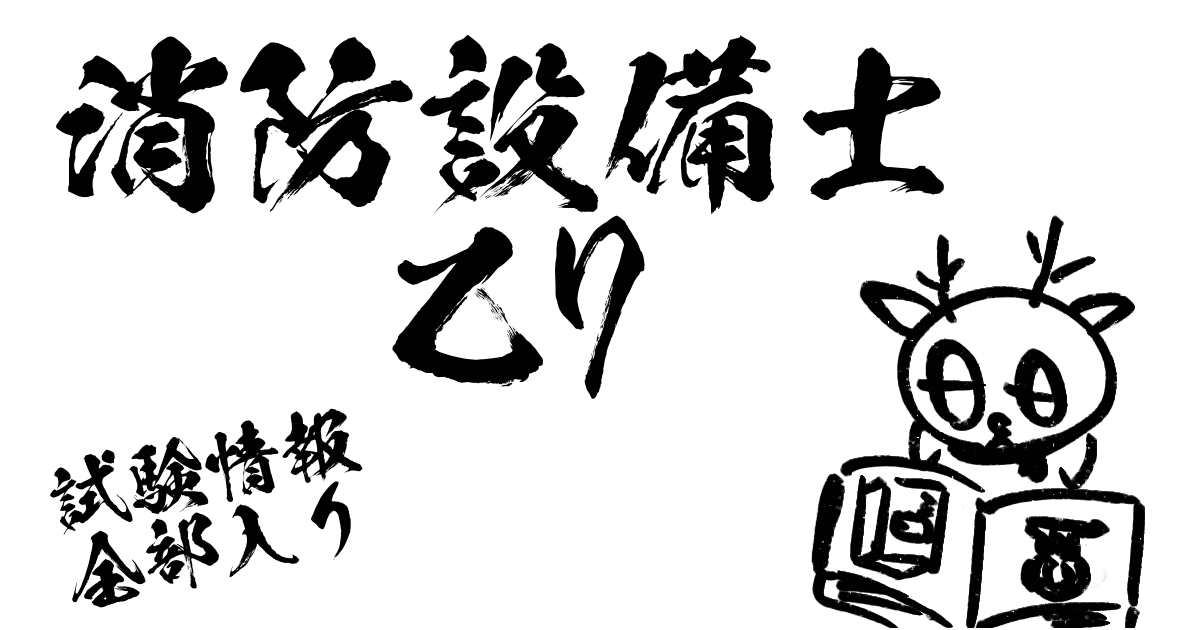 消防設備士
乙7
試験情報
全部入り